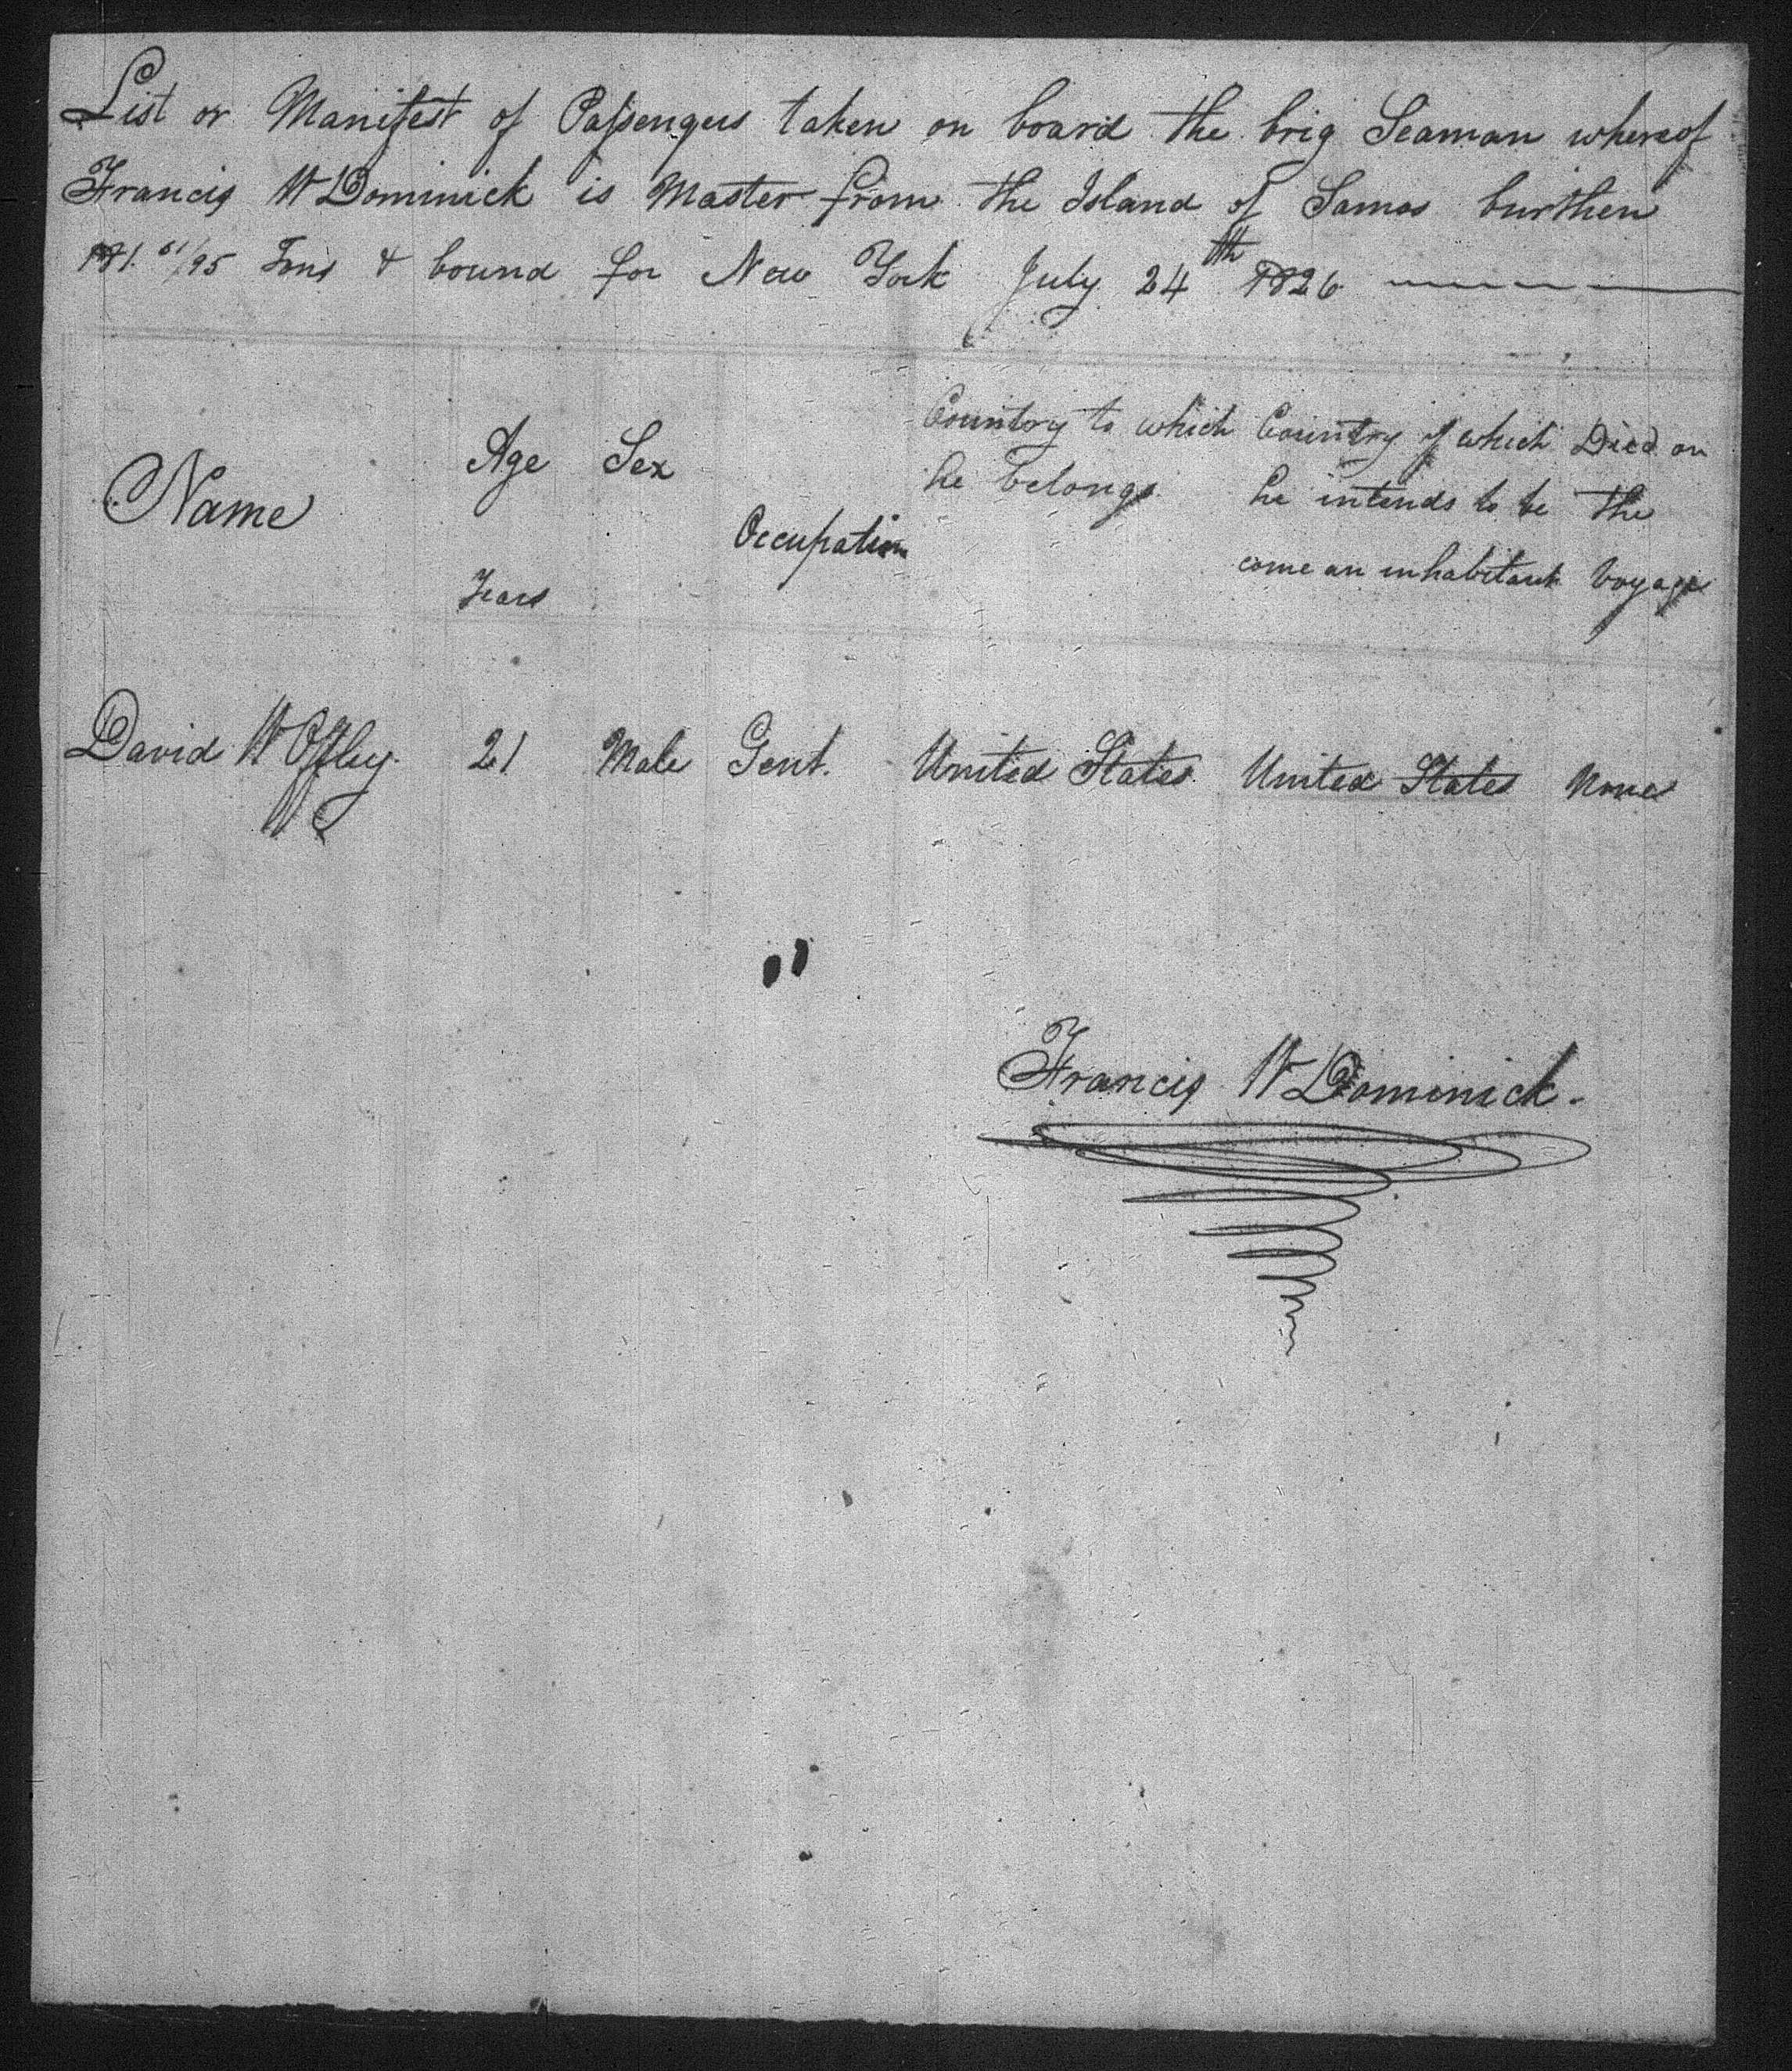 List or Manifest of Passengers taken on board the brig Seaman whereof
Francis W Dominick is Master from the Island of Samos burthen
181. 61/95 Tons & bound for New York July 24th 1826
Name Age Years Sex Occupation Country to which he belongs Country of which he intends to be come an inhabitant Died on the Voyage
David W Offley. 21 Male Gent. United States United States None
Francis W Dominick.